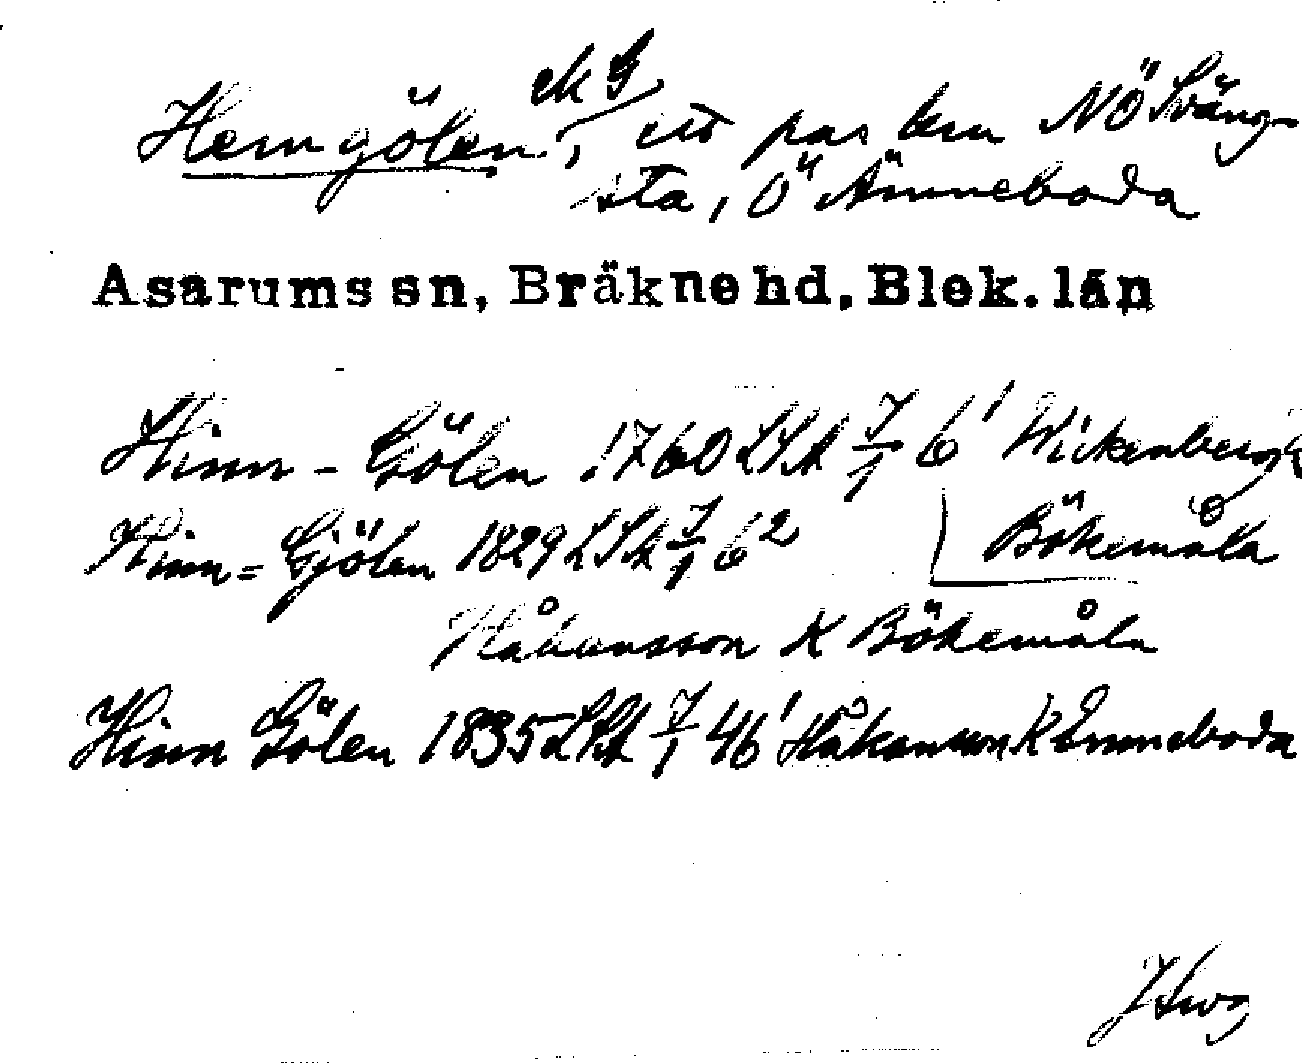 Hemgölen, ett par km NÖ Sväng-
sta, Ö Ämneboda
Asarums sn, Bräkne hd, Blek. län
Hinn - Gölen 1760 LSA 7/1 6¹ Wickenberg
Bökemåla
Hinn = Gjölen 1829 LSA 7/1 6²
Håkansson K Bökemåla
Hinn Gölen 1835 LSA 7/1 46¹ Håkansson K Emneboda